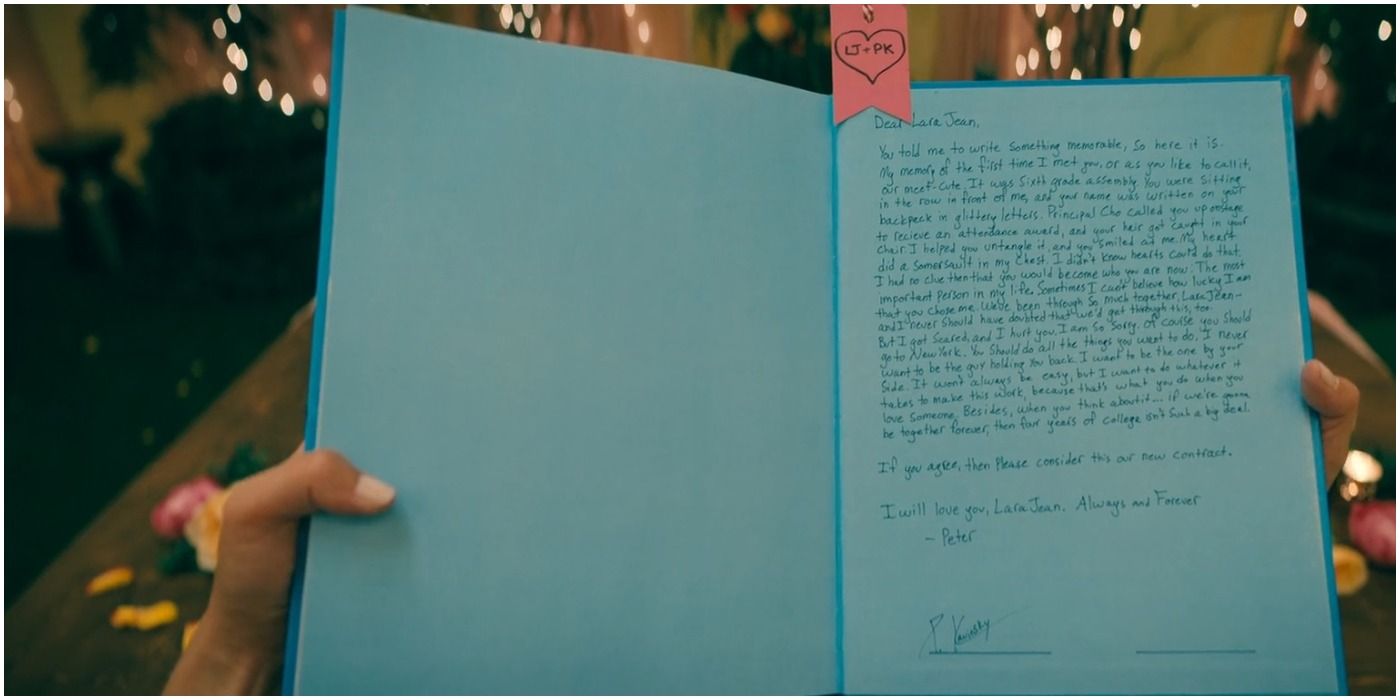 LJ+PK
Dear Lara Jean,
You told me to write something memorable, so here it is.
My memory of the first time I met you, or as you like to call it,
our meet-cute. It was sixth grade assembly. You were sitting
in the row in front of me, and your name was written on your
backpack in glittery letters. Principal Cho called you up onstage
to recieve an attendance award, and your hair got caught in your
chair. I helped you untangle it, and you smiled at me. My heart
did a somersault in my chest. I didn't know hearts could do that.
I had no clue then that you would become who you are now: The most
important person in my life. Sometimes I can't believe how lucky I am
that you chose me. We've been through so much together, Lara Jean-
and I never should have doubted that we'd get through this, too.
But I got scared, and I hurt you. I am so sorry. Of course you should
go to New York. You should do all the things you want to do. I never
want to be the guy holding you back. I want to be the one by your
side. It won't always be easy, but I want to do whatever it
takes to make this work, because that's what you do when you
love someone. Besides, when you think about it... if we're gonna
be together forever, then four years of college isn't such a big deal.
If you agree, then please consider this our new contract.
I will love you, Lara Jean. Always and Forever
- Peter
P. Kavinsky